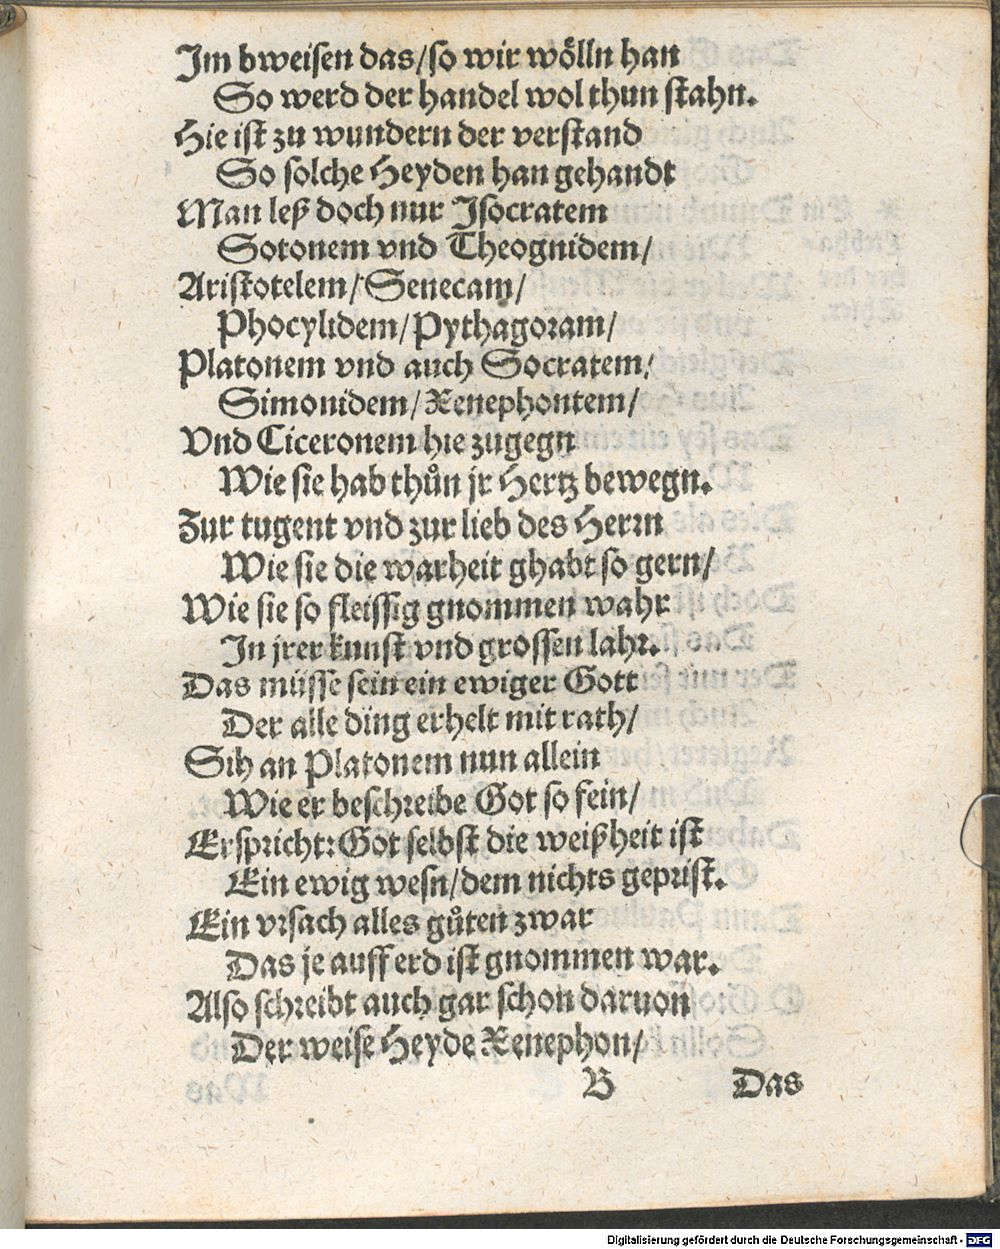 Im bweisen das/so wir wölln han
So werd der handel wol thun stahn.
Hie ist zu wundern der verstand
So solche Heyden han gehandt
Man leß doch nur Isocratem
Sotonem vnd Theognidem/
Aristotelem/Senecam/
Phocylidem/Pythagoram/
Platonem vnd auch Socratem/
Simonidem/Xenephontem/
Vnd Ciceronem hie zugegn
Wie sie hab thůn jr Hertz bewegn.
Zur tugent vnd zur lieb des Herrn
Wie sie die warheit ghabt so gern/
Wie sie so fleissig gnommen wahr
In jrer kunst vnd grossen lahr.
Das müsse sein ein ewiger Gott
Der alle ding erhelt mit rath/
Sih an Platonem nun allein
Wie er beschreibe Got so fein/
Er spricht: Got selbst die weißheit ist
Ein ewig wesn/dem nichts geprist.
Ein vrsach alles gůten zwar
Das je auff erd ist gnommen war.
Also schreibt auch gar schon daruon
Der weise Heyde Xenephon/
B Das
Digitalisierung gefördert durch die Deutsche Forschungsgemeinschaft - DFG